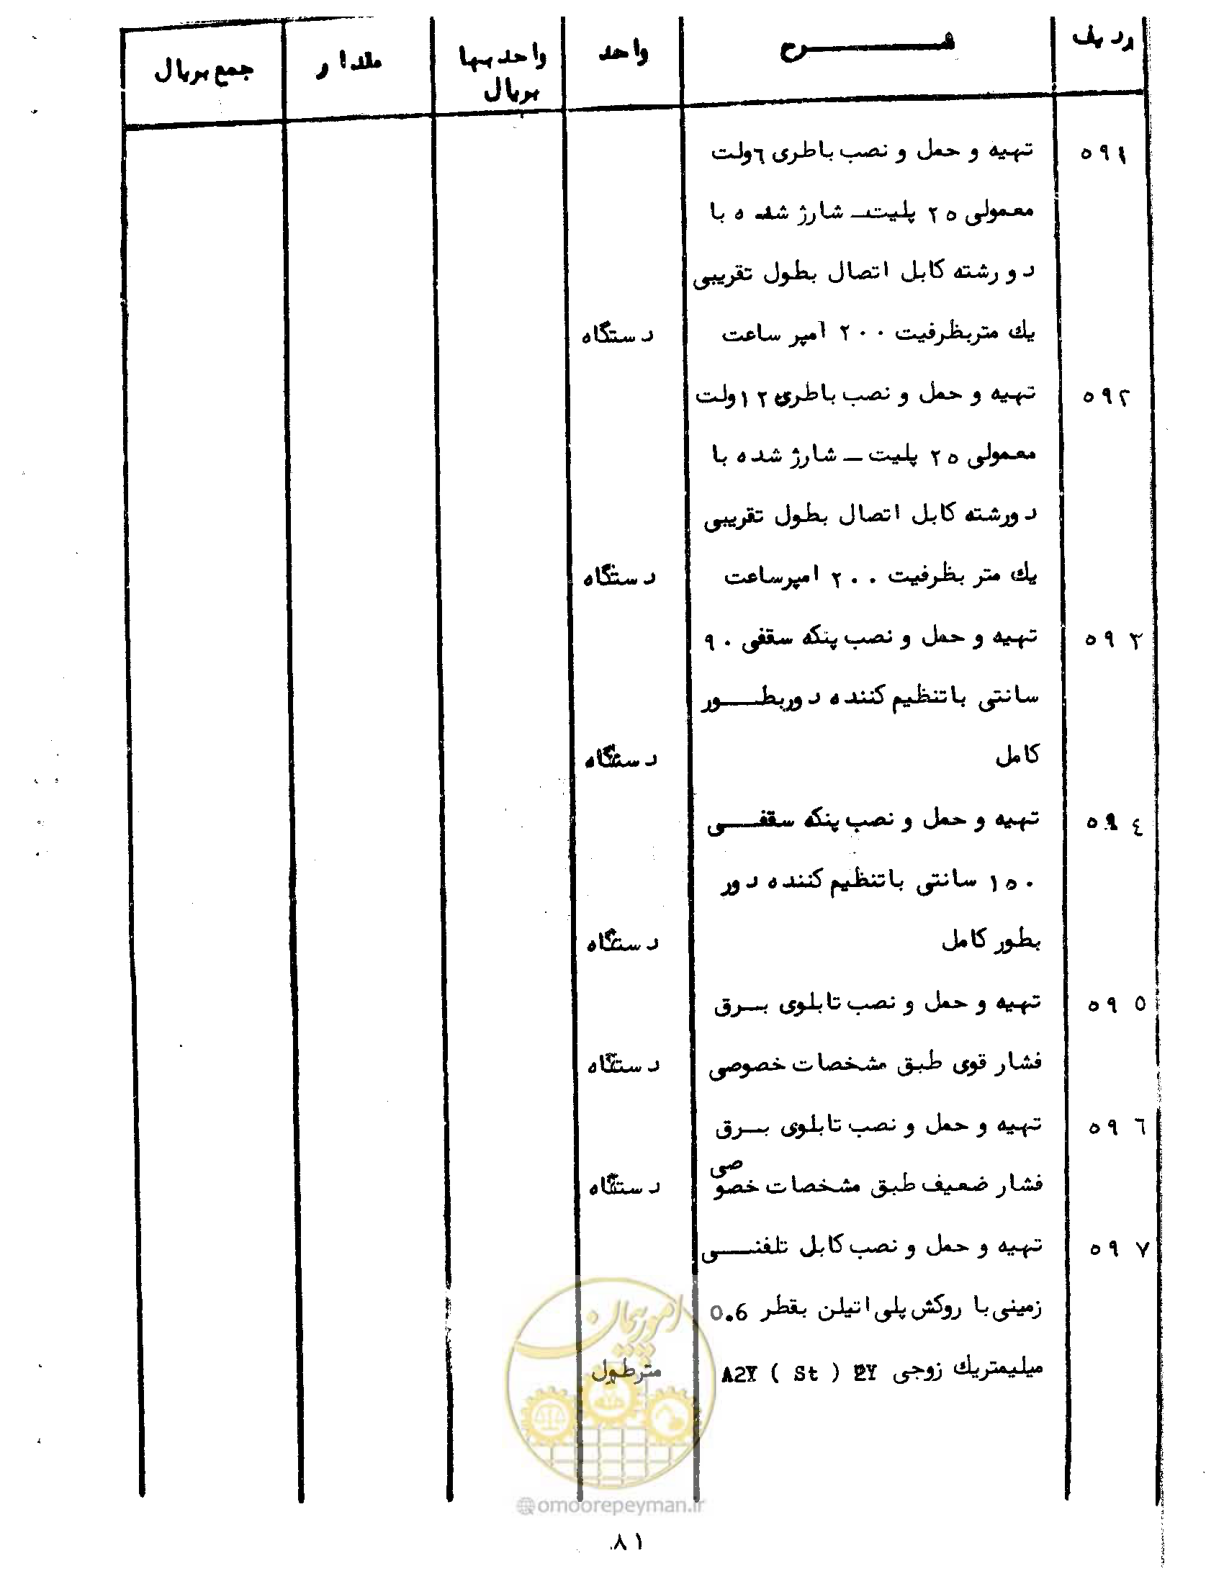 ردیف شرح واحد واحد بها بریال مقدار جمع بریال
۵۹۱ تهیه و حمل و نصب باطری ۶ ولت
معمولی ۲۵ پلیت ـ شارژ شده با
دو رشته کابل اتصال بطول تقریبی
یك متر بظرفیت ۲۰۰ آمپر ساعت دستگاه
۵۹۲ تهیه و حمل و نصب باطری ۱۲ ولت
معمولی ۲۵ پلیت ـ شارژ شده با
دورشته کابل اتصال بطول تقریبی
یك متر بظرفیت ۲۰۰ امپرساعت دستگاه
۵۹۳ تهیه و حمل و نصب پنکه سقفی ۹۰
سانتی باتنظیم کننده دوربطـور
کامل دستگاه
۵۹٤ تهیه و حمل و نصب پنکه سقفـی
۱۵۰ سانتی باتنظیم کننده دور
بطور کامل دستگاه
۵۹۵ تهیه و حمل و نصب تابلوی بـرق
فشار قوی طبق مشخصات خصوصی دستگاه
۵۹٦ تهیه و حمل و نصب تابلوی بـرق
فشار ضعیف طبق مشخصات خصوصی دستگاه
۵۹۷ تهیه و حمل و نصب کابل تلفنـی
زمینی با روکش پلی اتیلن بقطر 0.6
میلیمتریك زوجی A2Y ( St ) 2Y مترطول
امور پیمان
@omoorepeyman.ir
۸۱